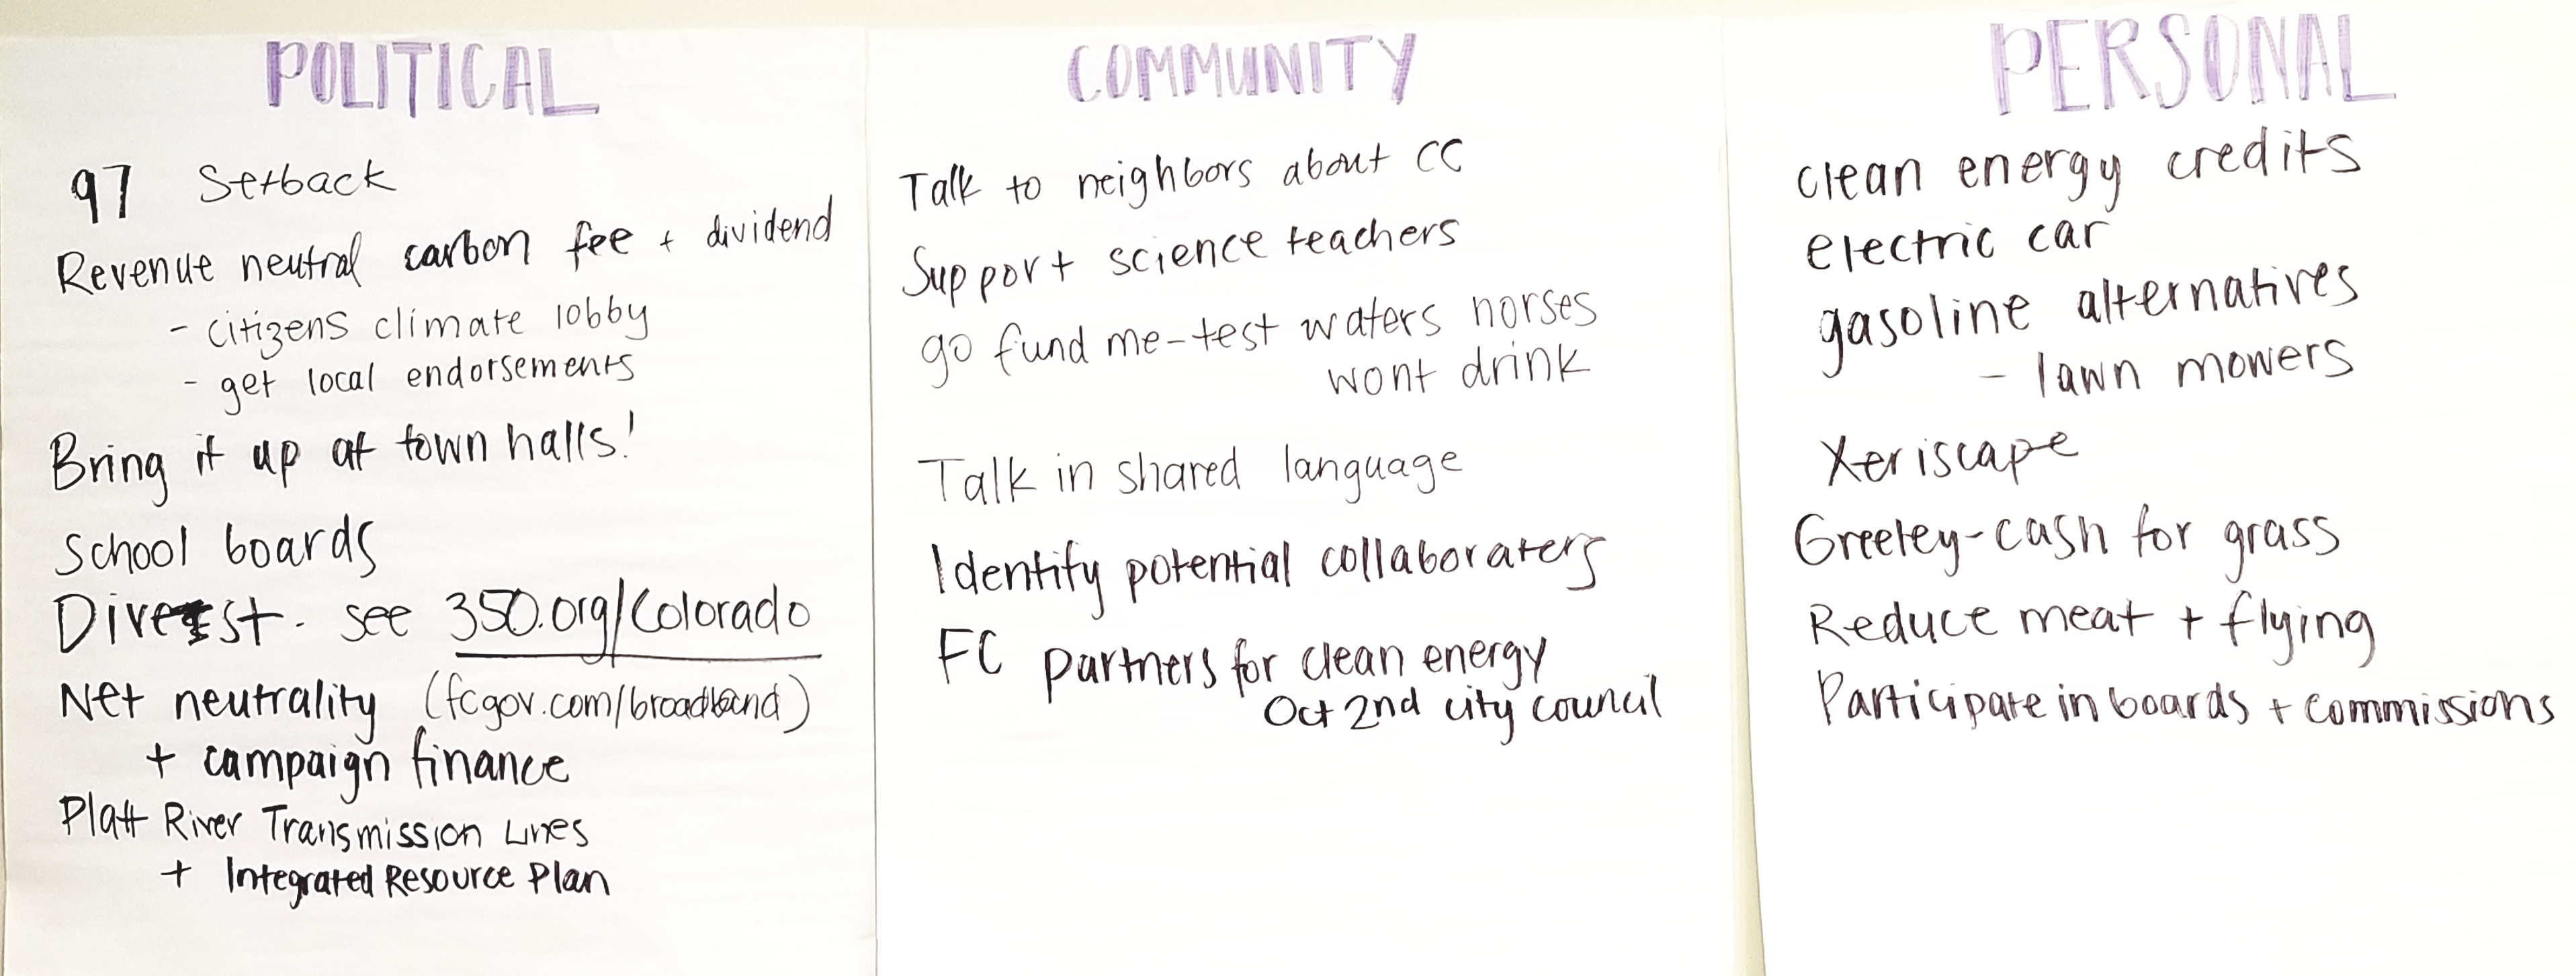 POLITICAL
97 Setback
Revenue neutral carbon fee + dividend
- citizens climate lobby
- get local endorsements
Bring it up at town halls!
School boards
Divest - see 350.org/Colorado
Net neutrality (fcgov.com/broadband)
+ campaign finance
Platt River Transmission Lines
+ Integrated Resource Plan
COMMUNITY
Talk to neighbors about CC
Support science teachers
go fund me - test waters horses
wont drink
Talk in shared language
Identify potential collaboraters
FC partners for clean energy
Oct 2nd city council
PERSONAL
clean energy credits
electric car
gasoline alternatives
- lawn mowers
Xeriscape
Greeley - cash for grass
Reduce meat + flying
Participate in boards + commissions